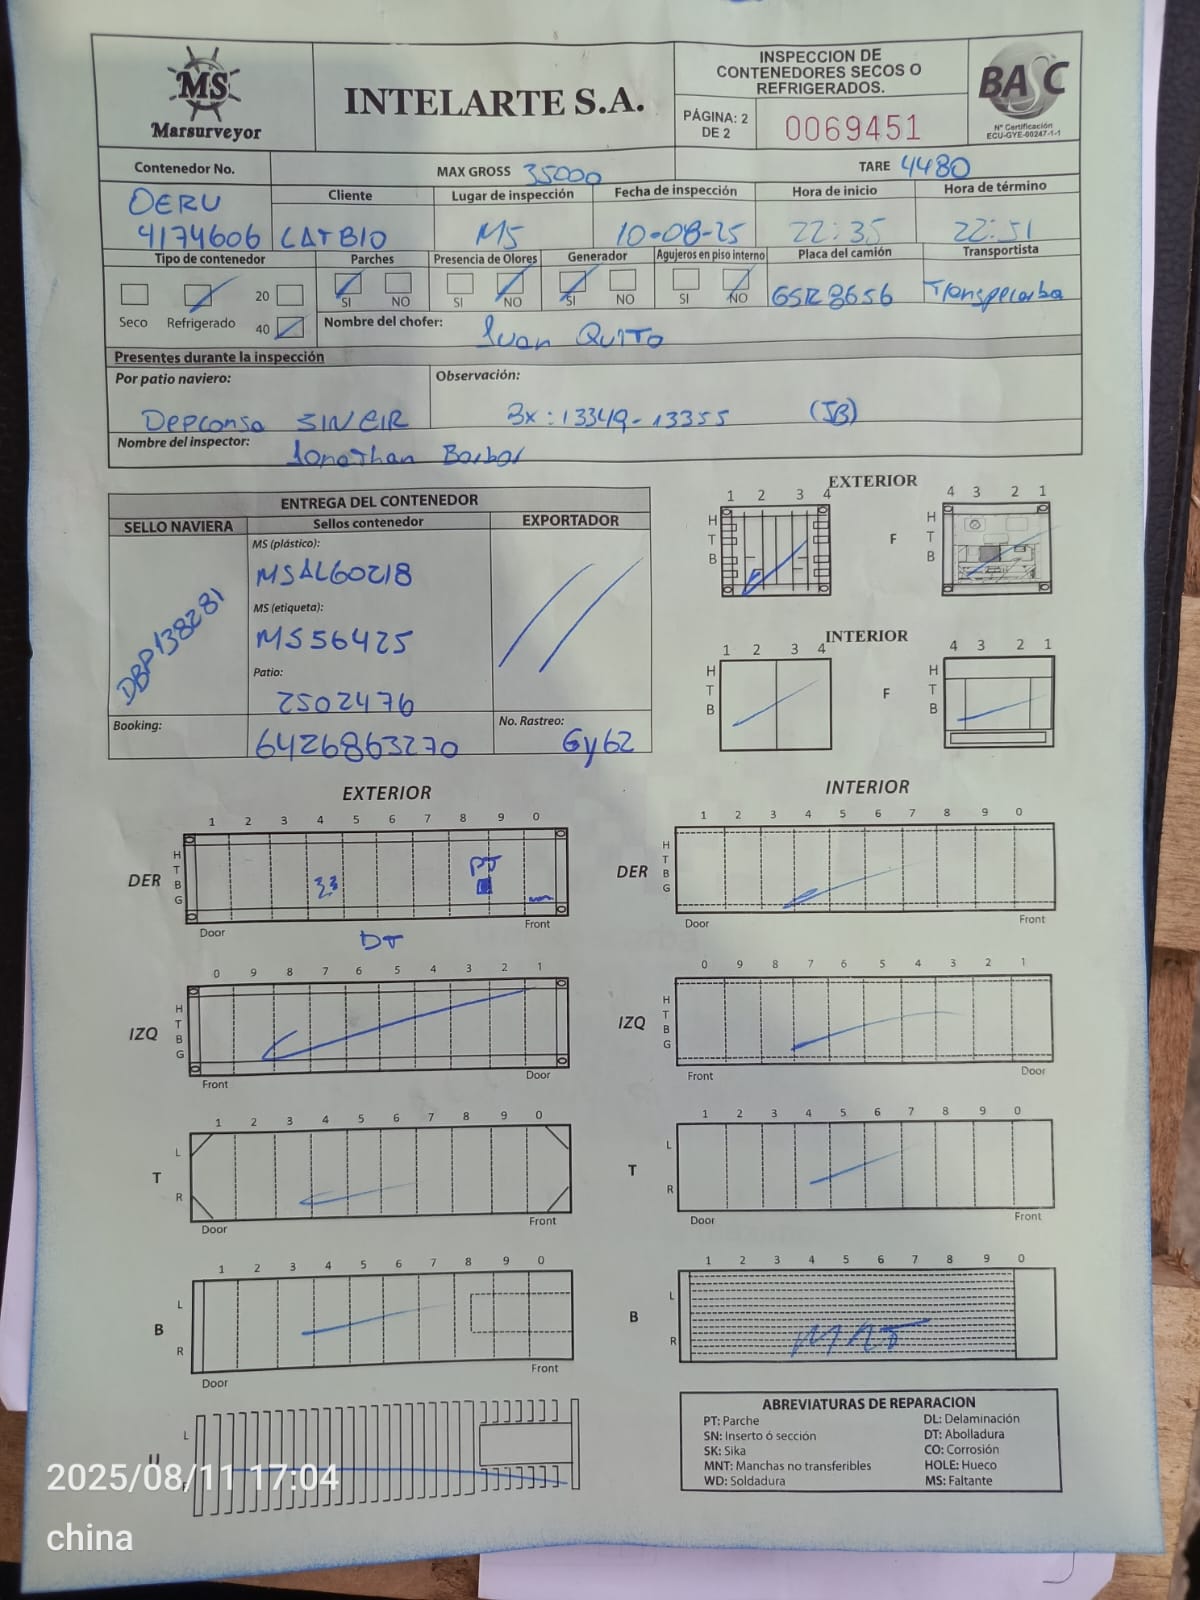 MS
Marsurveyor
INTELARTE S.A.
INSPECCION DE
CONTENEDORES SECOS O
REFRIGERADOS.
PÁGINA: 2
DE 2
0069451
BASC
N° Certificación
ECU-GYE-00247-1-1
Contenedor No.
MAX GROSS 35000
TARE 4480
OERU
4174606
Cliente
Lugar de inspección
Fecha de inspección
Hora de inicio
Hora de término
CATBIO
MS
10-08-25
22:35
22:51
Tipo de contenedor
Parches
Presencia de Olores
Generador
Agujeros en piso interno
Placa del camión
Transportista
SI NO
SI NO
SI NO
SI NO
GSR8656
20
Seco Refrigerado 40
Nombre del chofer:
Juan Quito
Presentes durante la inspección
Por patio naviero:
Depconsa SINEIR
Observación:
Bx: 13349-13355 (JB)
Nombre del inspector:
Jonathan Barbor
ENTREGA DEL CONTENEDOR
SELLO NAVIERA
Sellos contenedor
EXPORTADOR
DBP138281
MS (plástico):
MSAL60218
MS (etiqueta):
MS56425
Patio:
2502476
Booking:
6426863270
No. Rastreo:
Gy62
EXTERIOR
1 2 3 4
H
T
B
F
4 3 2 1
H
T
B
INTERIOR
1 2 3 4
H
T
B
F
4 3 2 1
H
T
B
EXTERIOR
1 2 3 4 5 6 7 8 9 0
DER
H
T
B
G
PT
Door
Front
DT
0 9 8 7 6 5 4 3 2 1
IZQ
H
T
B
G
Front
Door
1 2 3 4 5 6 7 8 9 0
T
L
R
Door
Front
1 2 3 4 5 6 7 8 9 0
B
L
R
Door
Front
L
U
INTERIOR
1 2 3 4 5 6 7 8 9 0
DER
H
T
B
G
Door
Front
0 9 8 7 6 5 4 3 2 1
IZQ
H
T
B
G
Front
Door
1 2 3 4 5 6 7 8 9 0
T
L
R
Door
Front
1 2 3 4 5 6 7 8 9 0
B
L
R
MNT
ABREVIATURAS DE REPARACION
PT: Parche
SN: Inserto ó sección
SK: Sika
MNT: Manchas no transferibles
WD: Soldadura
DL: Delaminación
DT: Abolladura
CO: Corrosión
HOLE: Hueco
MS: Faltante
2025/08/11 17:04
china